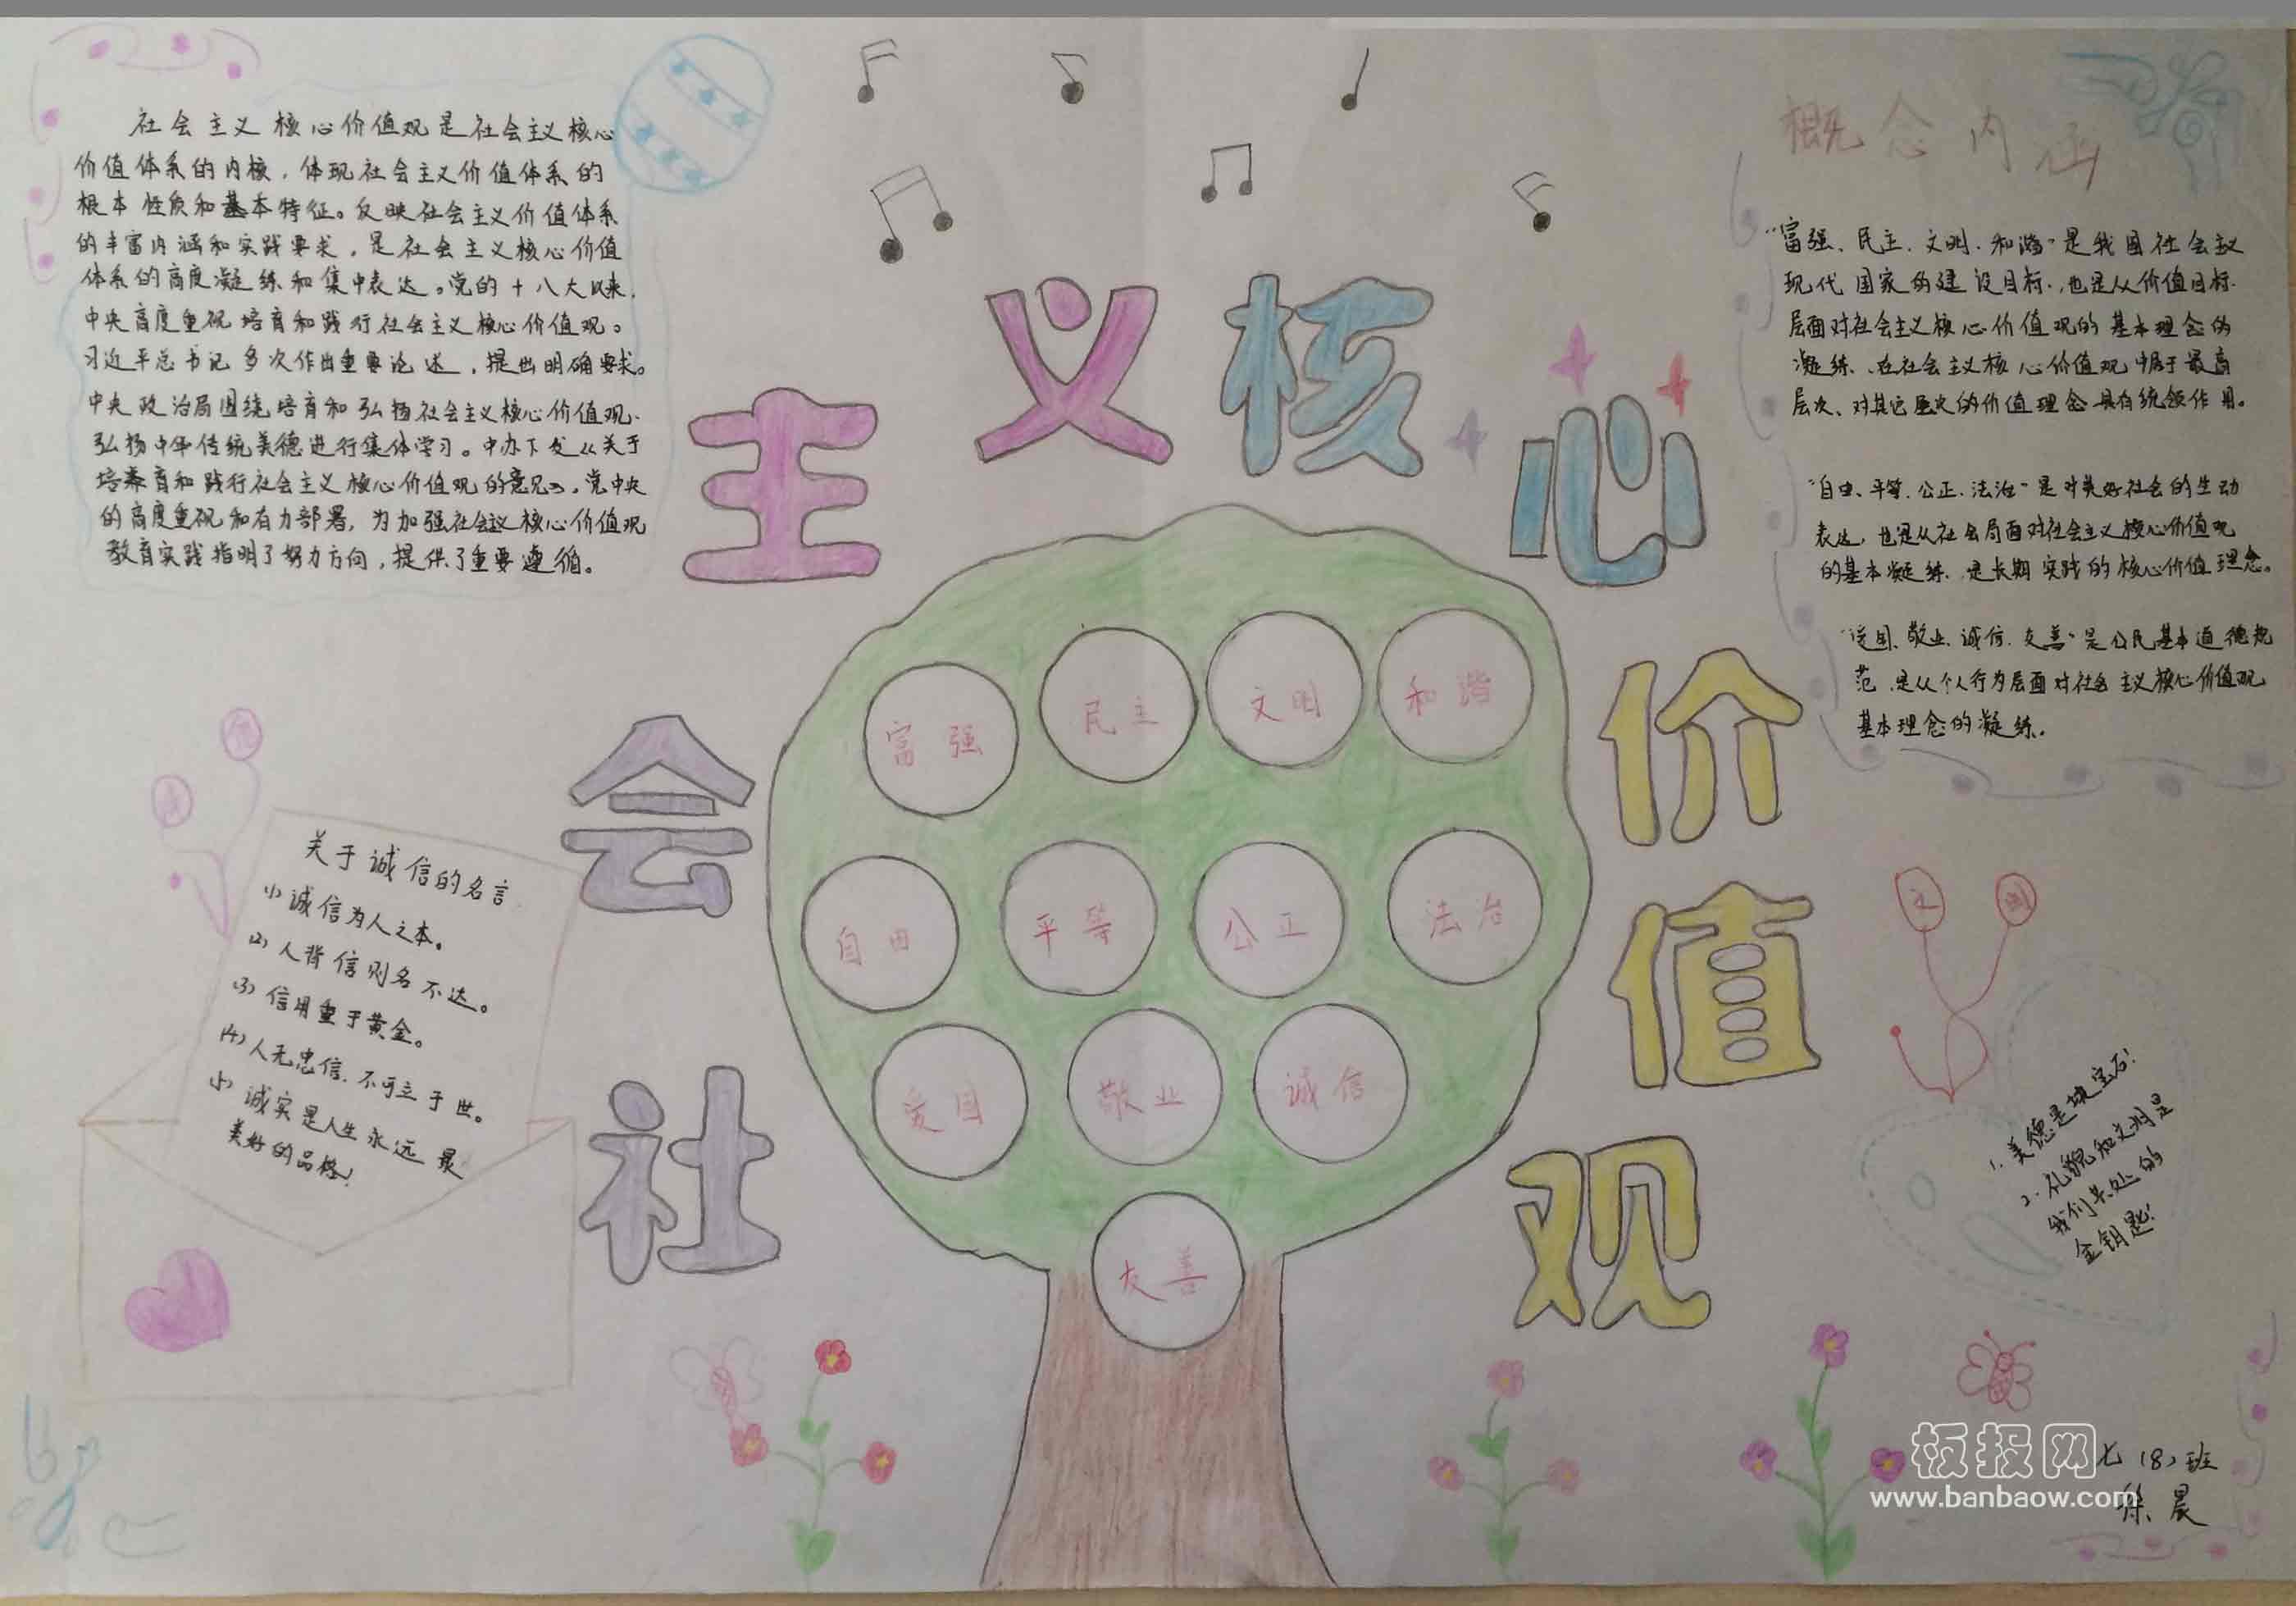 社会主义核心价值观
社会主义核心价值观是社会主义核心
价值体系的内核，体现社会主义价值体系的
根本性质和基本特征。反映社会主义价值体系
的丰富内涵和实践要求，是社会主义核心价值
体系的高度凝练和集中表达。党的十八大以来，
中央高度重视培育和践行社会主义核心价值观。
习近平总书记多次作出重要论述，提出明确要求。
中央政治局围绕培育和弘扬社会主义核心价值观、
弘扬中华传统美德进行集体学习。中办下发《关于
培育和践行社会主义核心价值观的意见》，党中央
的高度重视和有力部署，为加强社会主义核心价值观
教育实践指明了努力方向，提供了重要遵循。
概念内涵
“富强、民主、文明、和谐”是我国社会主义
现代国家的建设目标，也是从价值目标
层面对社会主义核心价值观的基本理念的
凝练、在社会主义核心价值观中居于最高
层次、对其它层次的价值理念具有统领作用。
“自由、平等、公正、法治”是对美好社会的生动
表达，也是从社会层面对社会主义核心价值观
的基本凝练、是长期实践的核心价值理念。
“爱国、敬业、诚信、友善”是公民基本道德规
范，是从个人行为层面对社会主义核心价值观
基本理念的凝练.
富强
民主
文明
和谐
自由
平等
公正
法治
爱国
敬业
诚信
友善
关于诚信的名言
(1)诚信为人之本。
(2)人背信则名不达。
(3)信用重于黄金。
(4)人无忠信、不可立于世。
(5)诚实是人生永远最
美好的品格！
1.美德是块宝石！
2.礼貌和文明是
我们共处的
金钥匙！
七(8)班
徐晨
板报网
www.banbaow.com